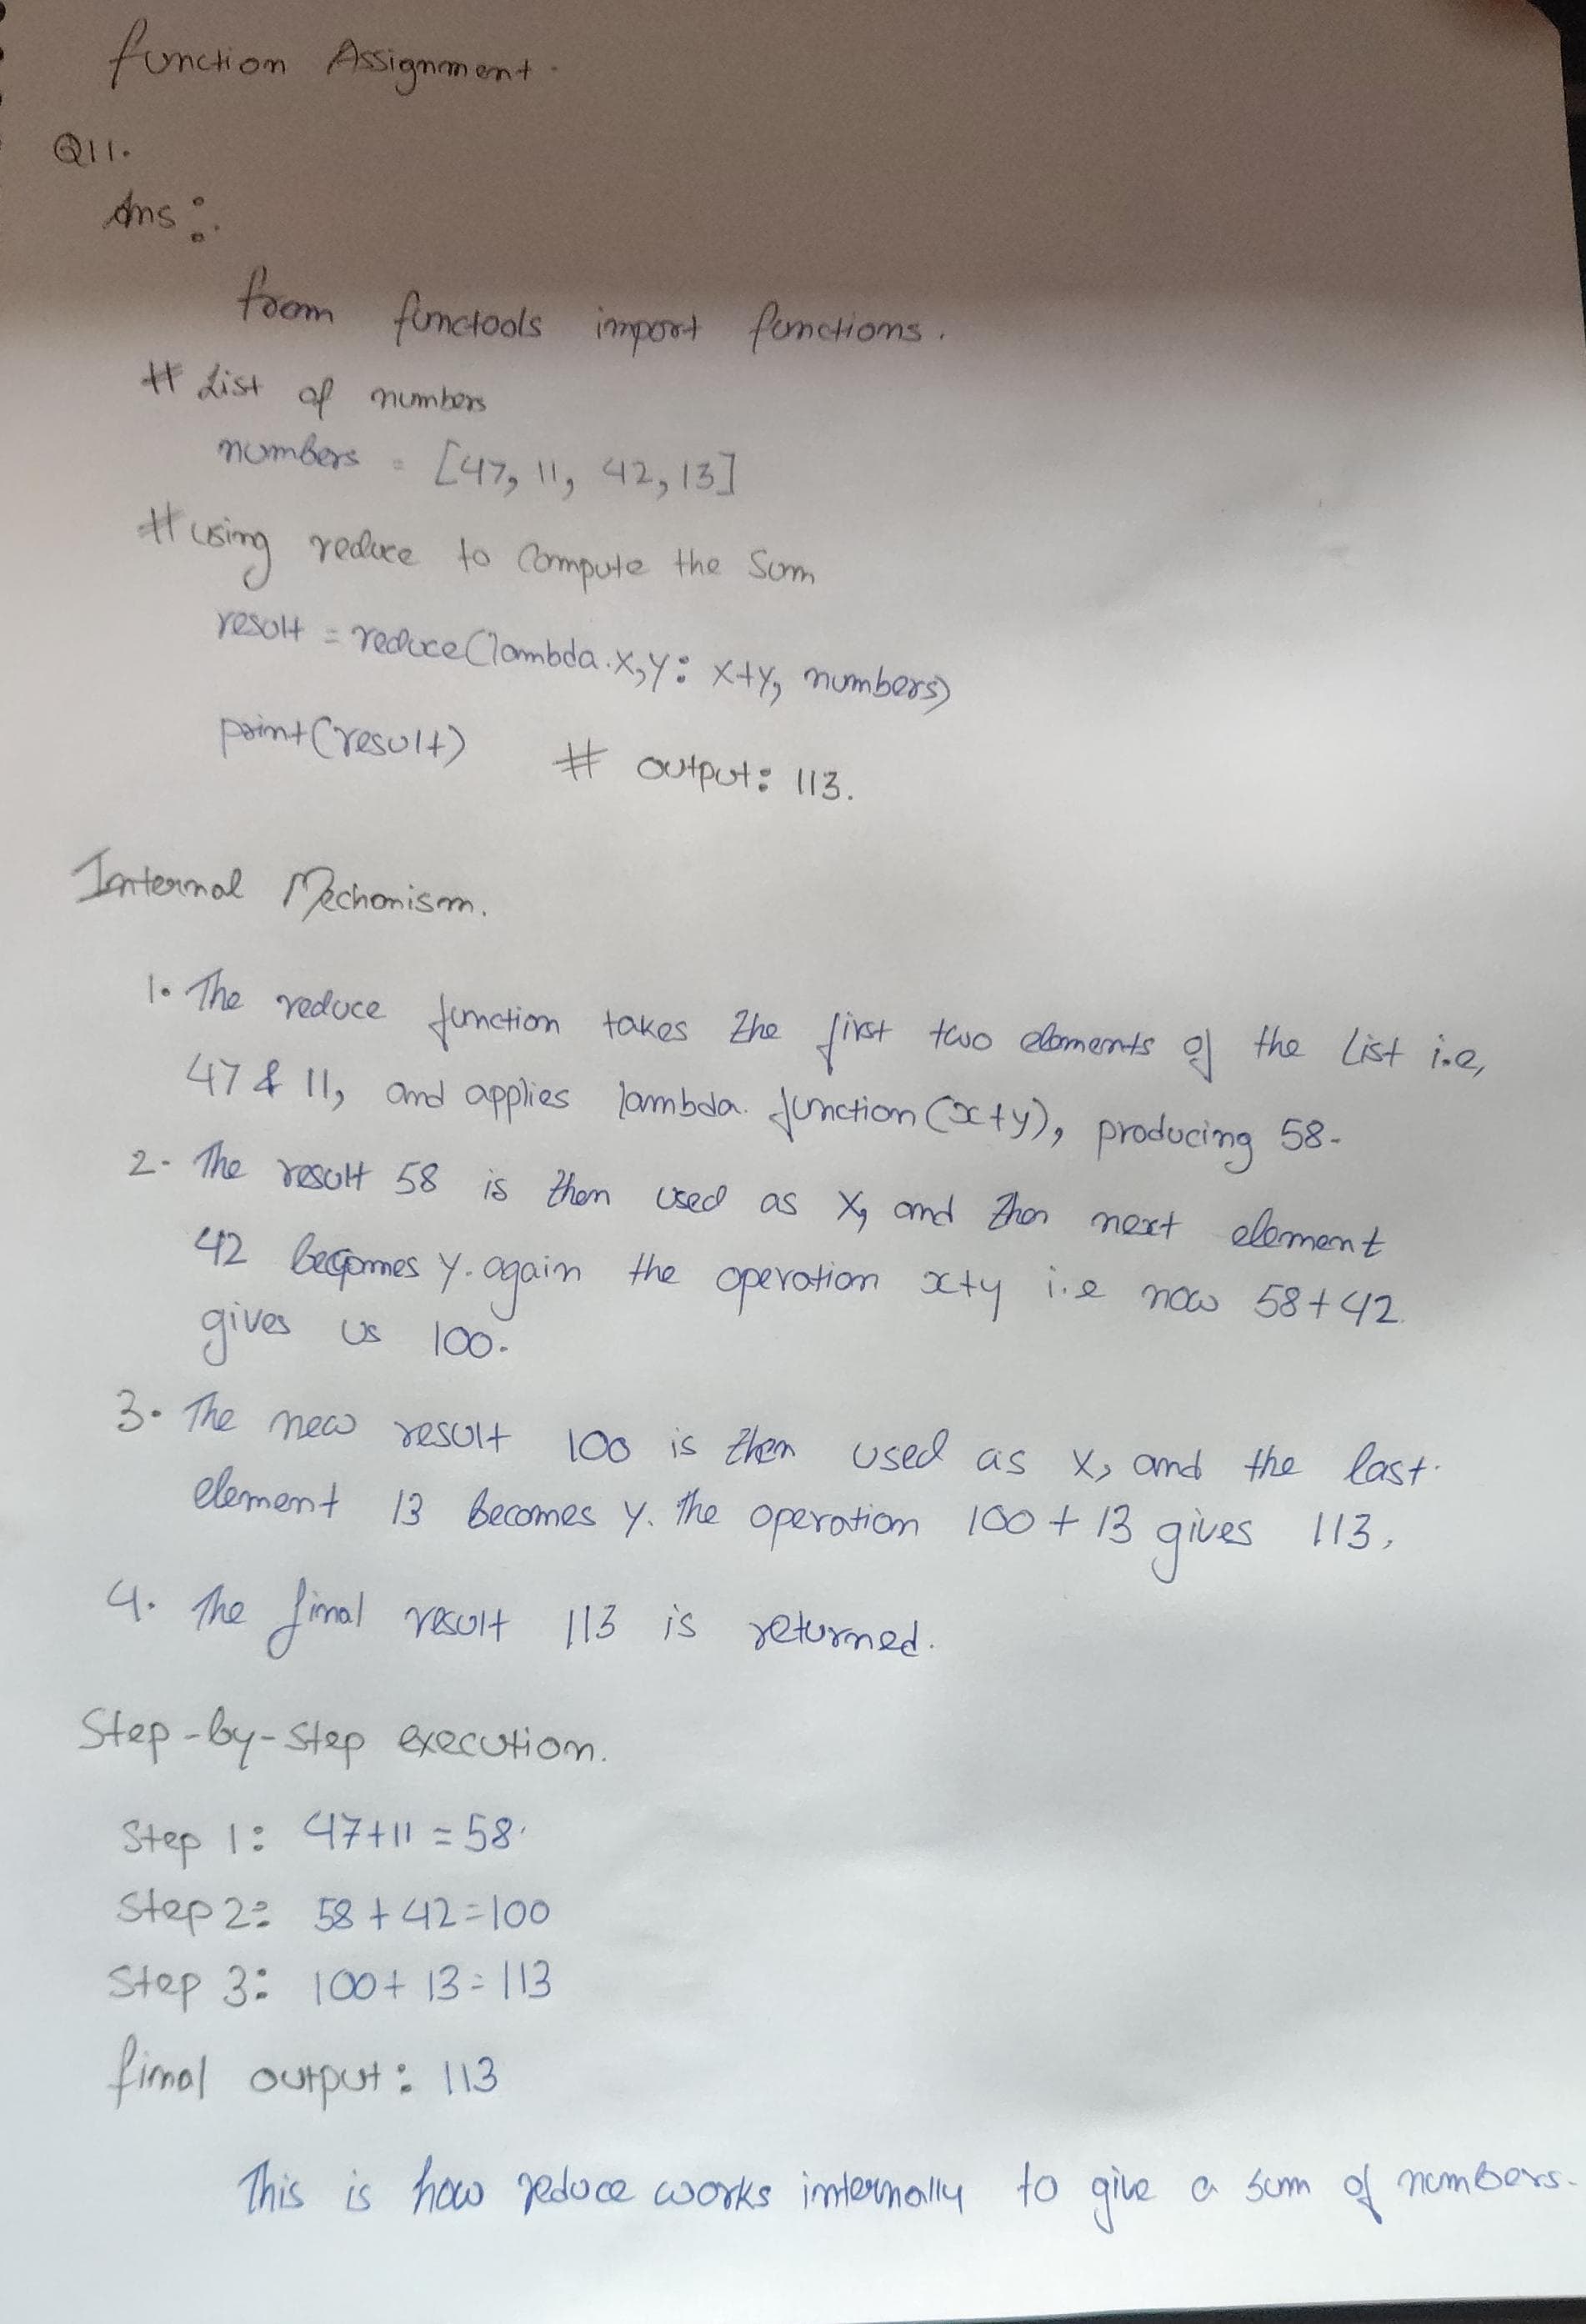 function Assignment.
Q11.
Ans :.
from functools import functions.
# List of numbers
numbers = [47, 11, 42, 13]
# using reduce to compute the sum
result = reduce(lambda.x,y: x+y, numbers)
print(result) # output: 113.
Internal Mechanism.
1. The reduce function takes the first two elements of the list i.e,
47 & 11, and applies lambda. function (x+y), producing 58.
2. The result 58 is then used as x, and then next element
42 becomes y. again the operation x+y i.e now 58+42.
gives us 100.
3. The new result 100 is then used as x, and the last.
element 13 becomes y. The operation 100 + 13 gives 113.
4. The final result 113 is returned.
Step-by-step execution.
Step 1: 47+11 = 58.
Step 2: 58 + 42 = 100
Step 3: 100 + 13 = 113
final output: 113
This is how reduce works internally to give a sum of numbers.